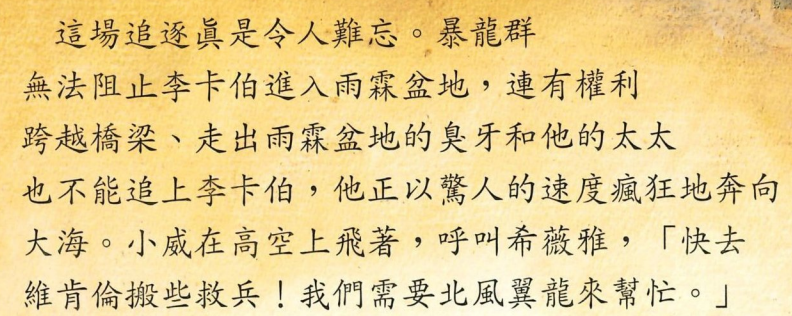 這場追逐真是令人難忘。暴龍群
無法阻止李卡伯進入雨霖盆地，連有權利
跨越橋梁、走出雨霖盆地的臭牙和他的太太
也不能追上李卡伯，他正以驚人的速度瘋狂地奔向
大海。小威在高空上飛著，呼叫希薇雅，「快去
維肯倫搬些救兵！我們需要北風翼龍來幫忙。」